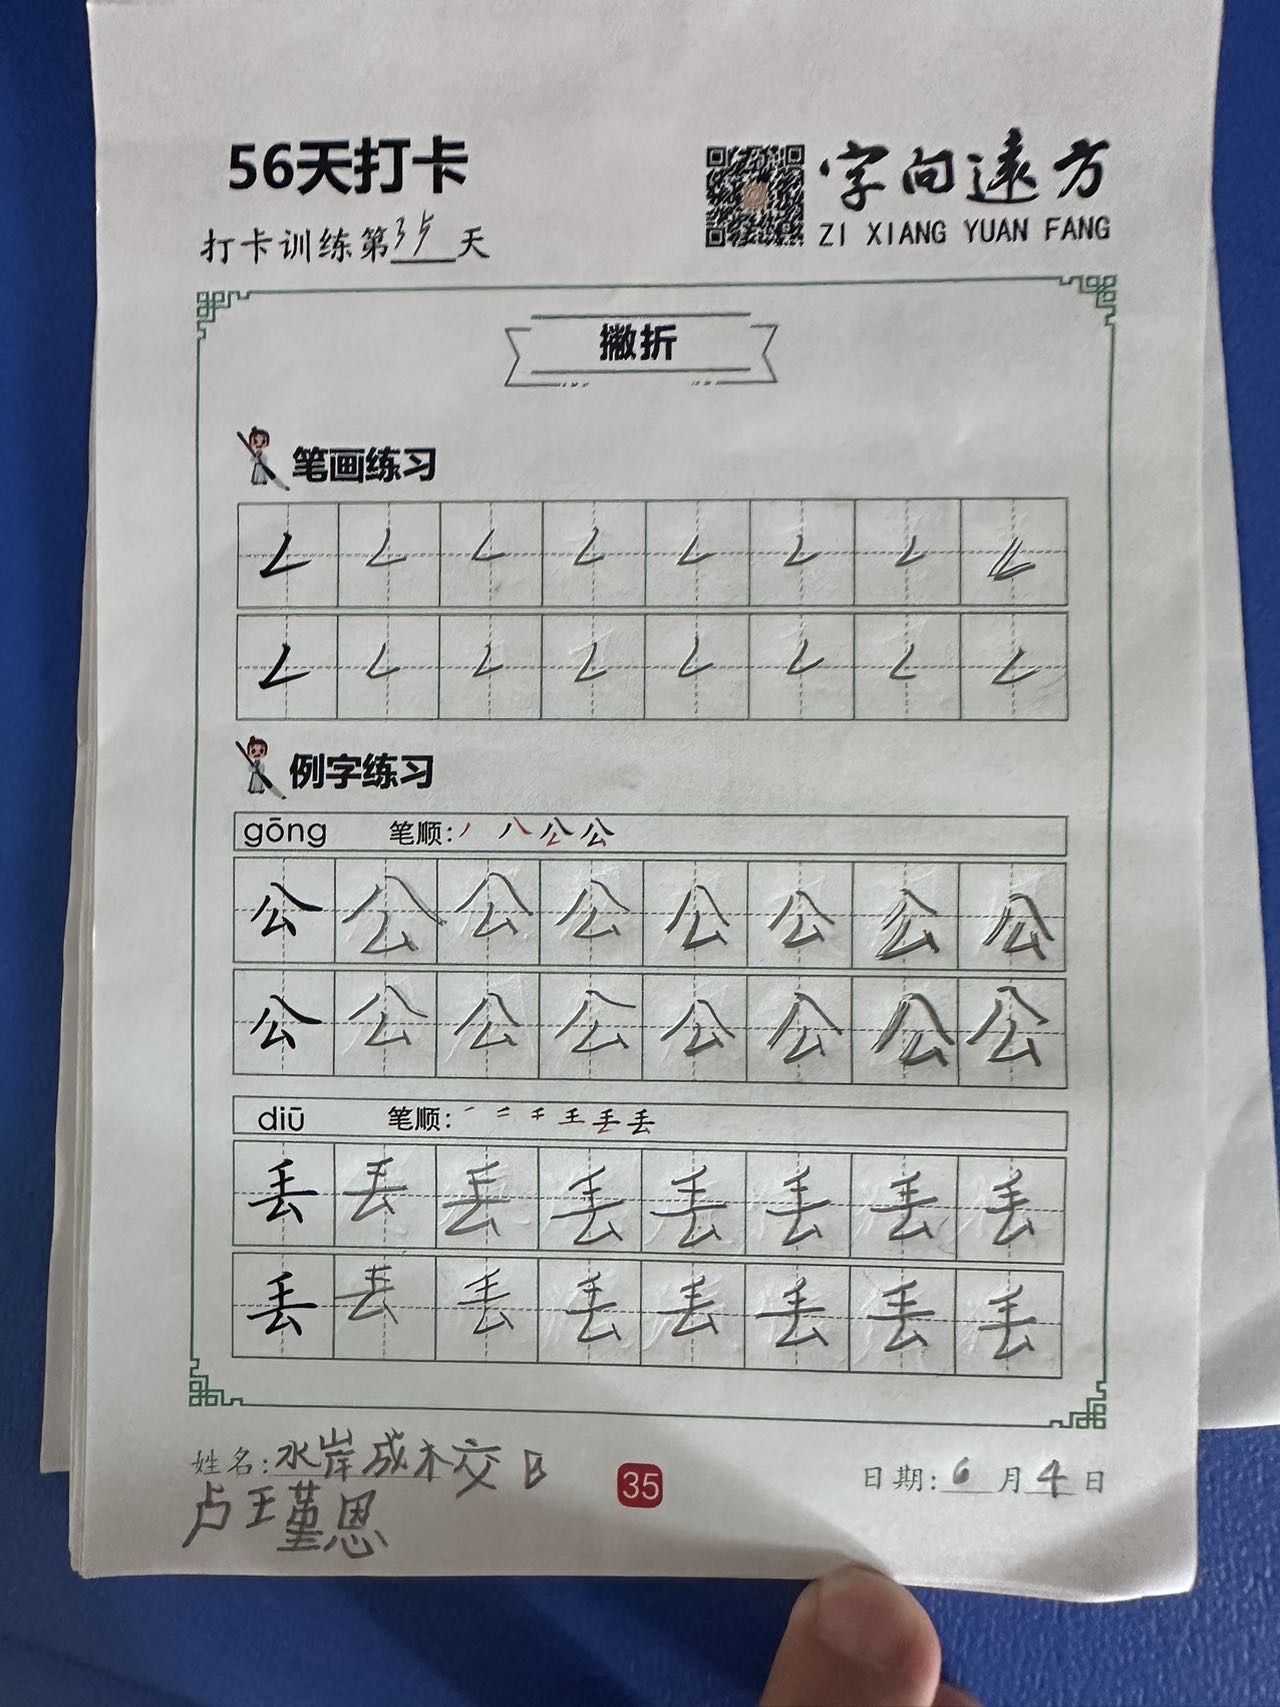 56天打卡
打卡训练第35天
字向远方
ZI XIANG YUAN FANG
撇折
笔画练习
例字练习
gōng 笔顺:
公 公 公 公 公 公 公 公
公 公 公 公 公 公 公 公
diū 笔顺:
丢 丢 丢 丢 丢 丢 丢 丢
丢 丢 丢 丢 丢 丢 丢 丢
姓名:水岸成木交 B
卢王堇恩
35
日期:6月4日